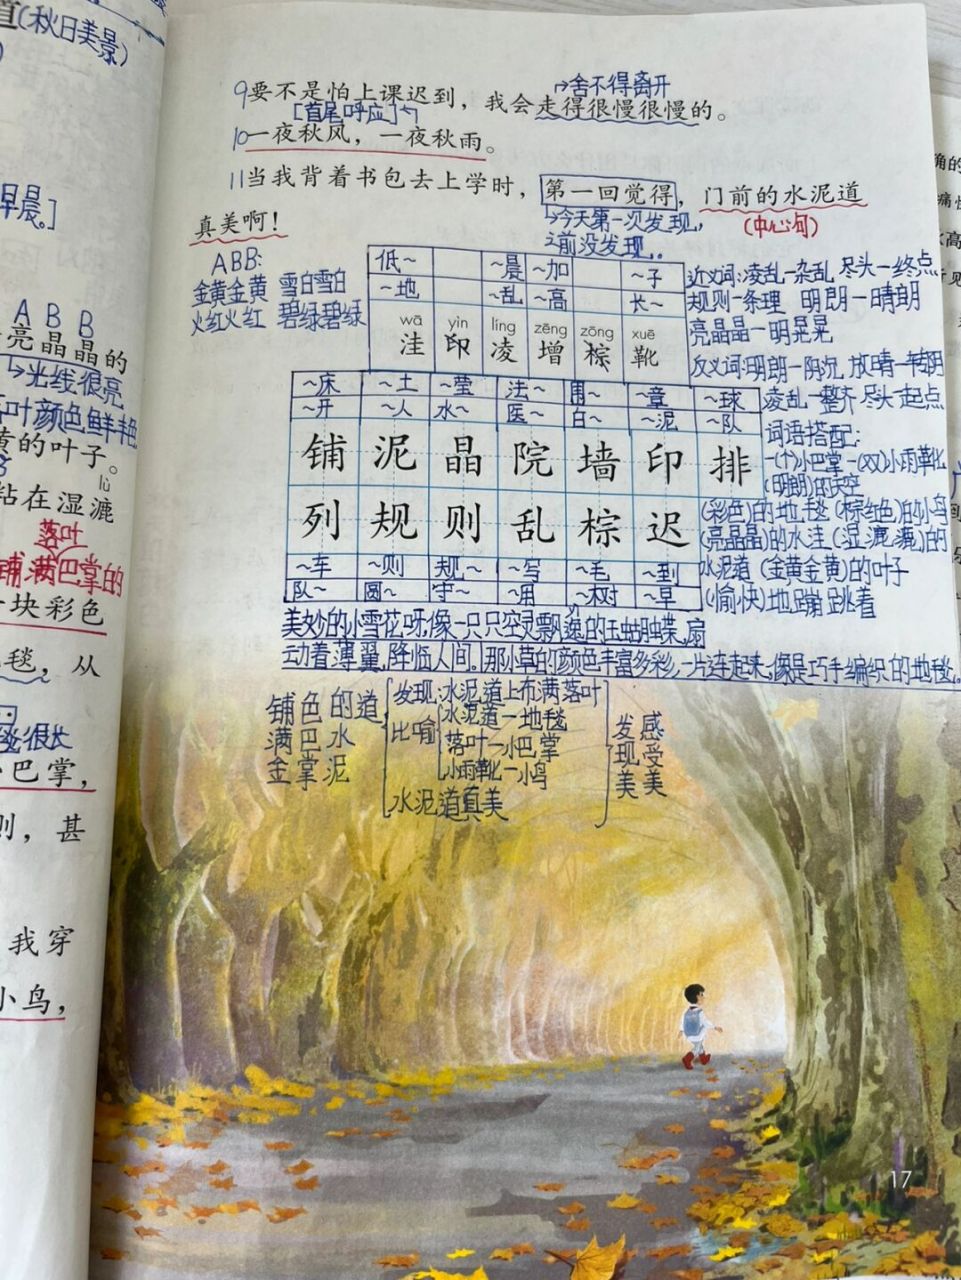 道(秋日美景)
9要不是怕上课迟到，我会走得很慢很慢的。
→舍不得离开
[首尾呼应]
10一夜秋风，一夜秋雨。
11当我背着书包去上学时，第一回觉得，门前的水泥道
真美啊！
→今天第一次发现，
之前没发现..
(中心句)
ABB:
金黄金黄 雪白雪白
火红火红 碧绿碧绿
低~ ~晨 ~加 ~子
~地 ~乱 ~高 长~
wā yìn líng zēng zōng xuē
洼 印 凌 增 棕 靴
近义词:凌乱—杂乱 尽头—终点
规则—条理 明朗—晴朗
亮晶晶—明晃晃
反义词:明朗—阴沉 放晴—转阴
凌乱—整齐 尽头—起点
~床 ~土 ~莹 法~ 围~ ~章 ~球
~开 ~人 水~ 医~ 白~ ~泥 ~队
铺 泥 晶 院 墙 印 排
列 规 则 乱 棕 迟
~车 ~则 规~ ~写 ~毛 ~到
队~ 圆~ 守~ ~用 ~树 ~草
词语搭配:
一(个)小巴掌 一(双)小雨靴
(明朗)的天空
(彩色)的地毯 (棕红色)的小鸟
(亮晶晶)的水洼 (湿漉漉)的
水泥道 (金黄金黄)的叶子
(愉快)地蹦跳着
美妙的小雪花呀,像一只只空灵飘逸的玉蝴蝶,扇
动着薄翼,降临人间。那小草的颜色丰富多彩,一片连起来,像是巧手编织的地毯。
铺色的道
满巴水
金掌泥
发现:水泥道上布满落叶
比喻
水泥道—地毯
落叶—小巴掌
小雨靴—小鸟
水泥道真美
发现美
感受美
17
早晨。]
A B B
亮晶晶的
→光线很亮
叶颜色鲜艳
黄的叶子。
lù
粘在湿漉
落叶
铺满巴掌的
一块彩色
毯，从
很长
小巴掌，
则，甚
我穿
小鸟，